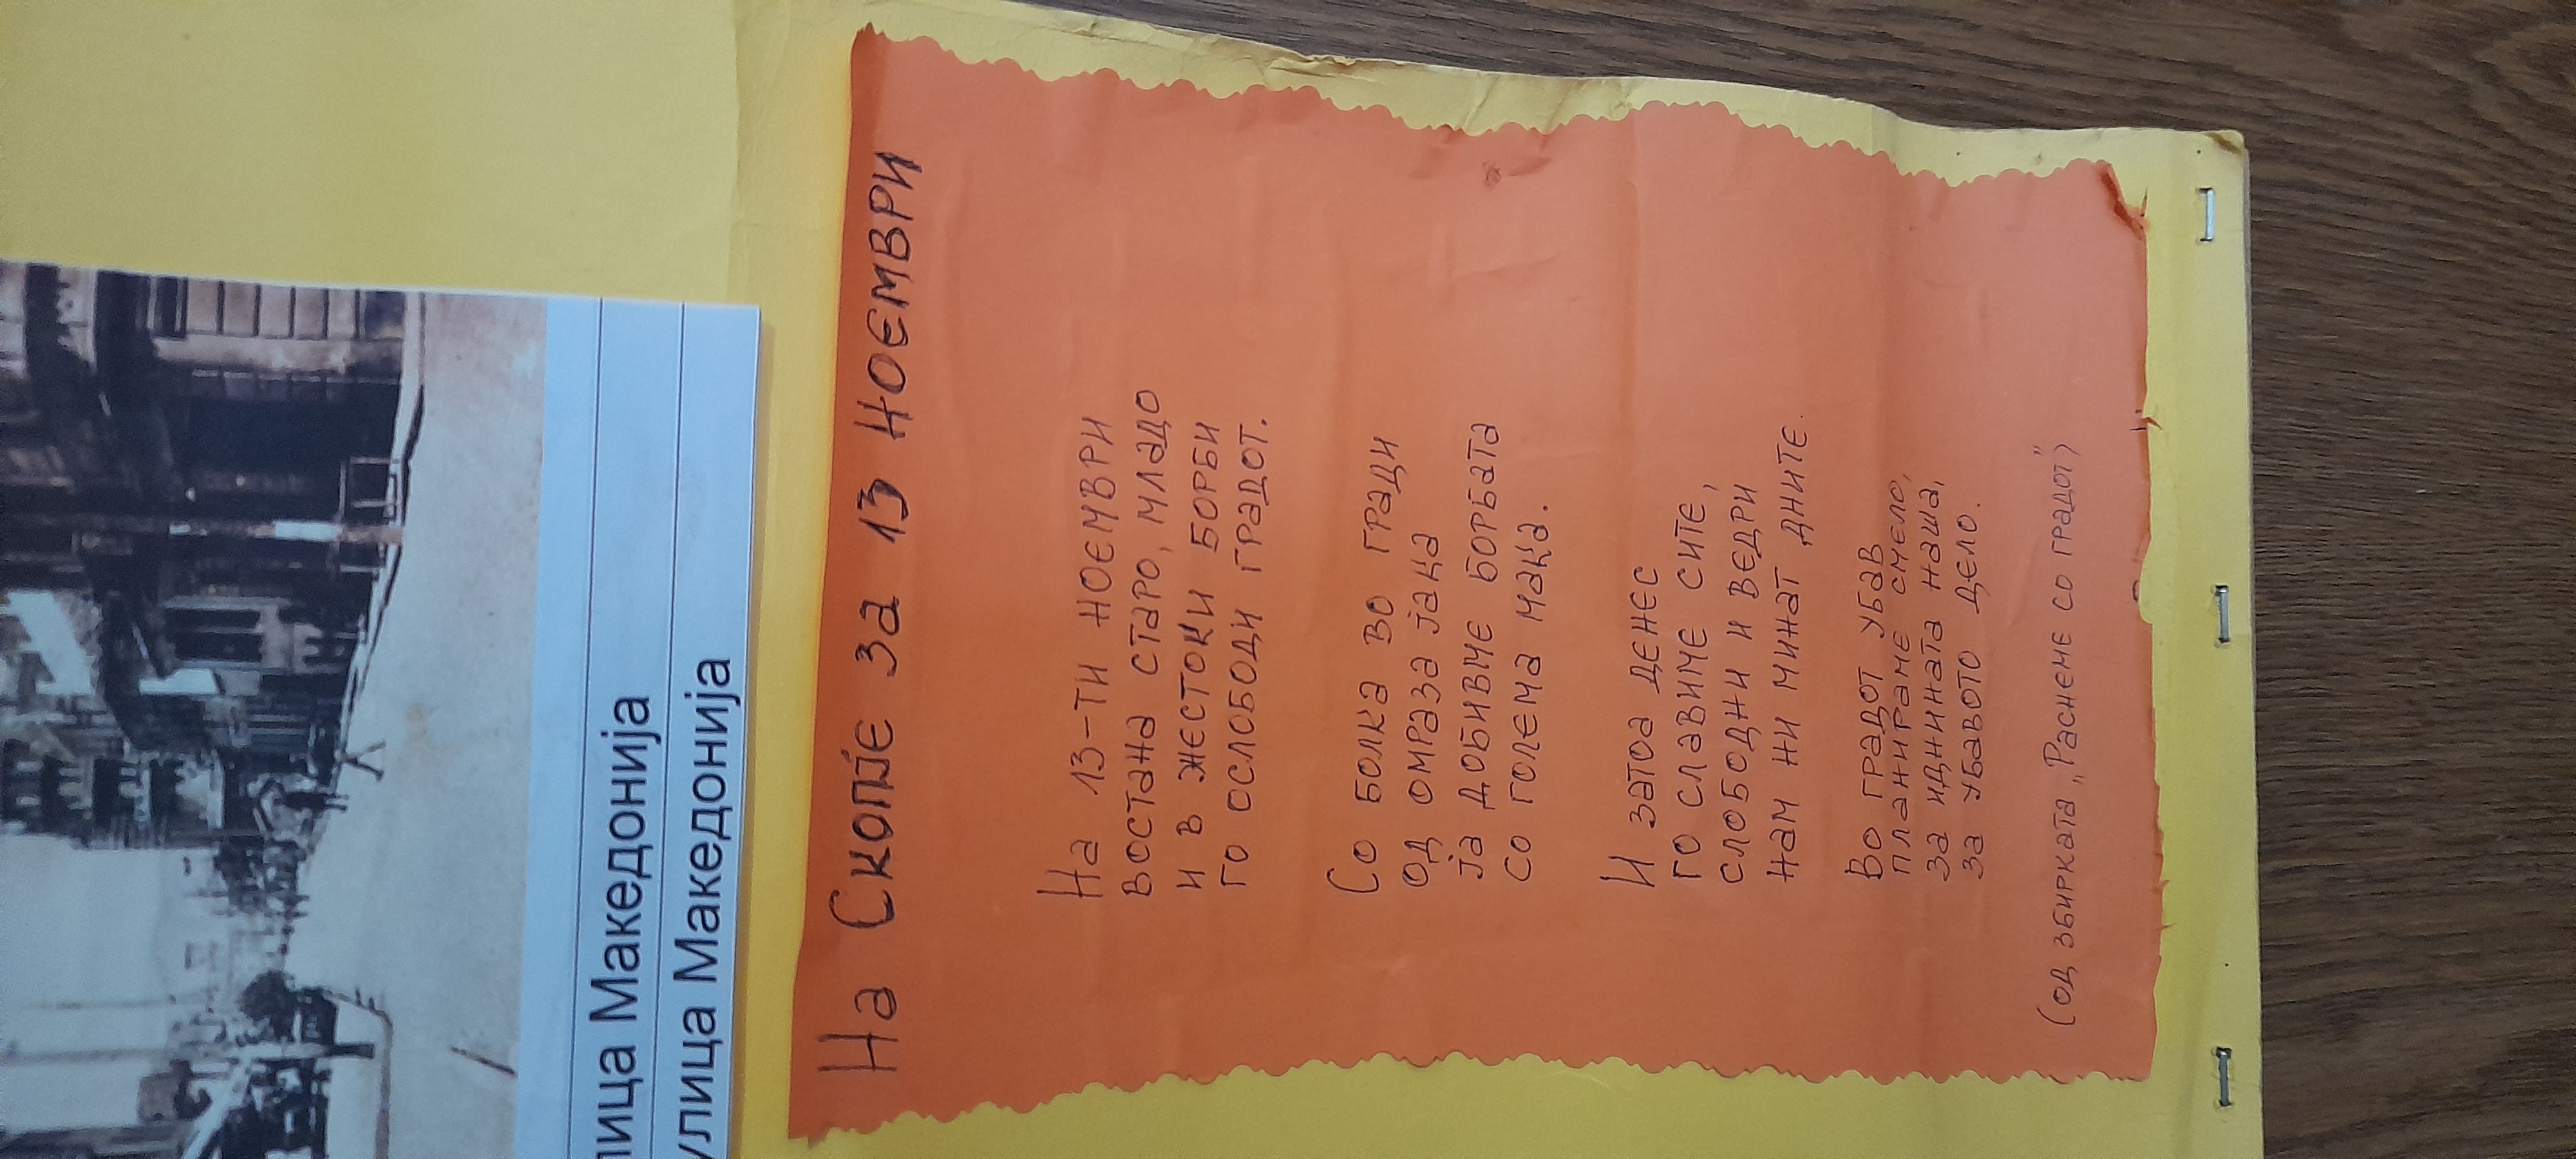 лица Македонија
улица Македонија
На Скопје за 13 ноември
На 13-ти ноември
востана старо, младо
и в жестоки борби
го ослободи градот.
Со болка во гради
од омраза јака
ја добивме борбата
со голема мака.
И затоа денес
го славиме сите,
слободни и ведри
нам ни минат дните.
Во градот убав
планираме смело,
за иднината наша,
за убавото дело.
(од збирката „Раснеме со градот")